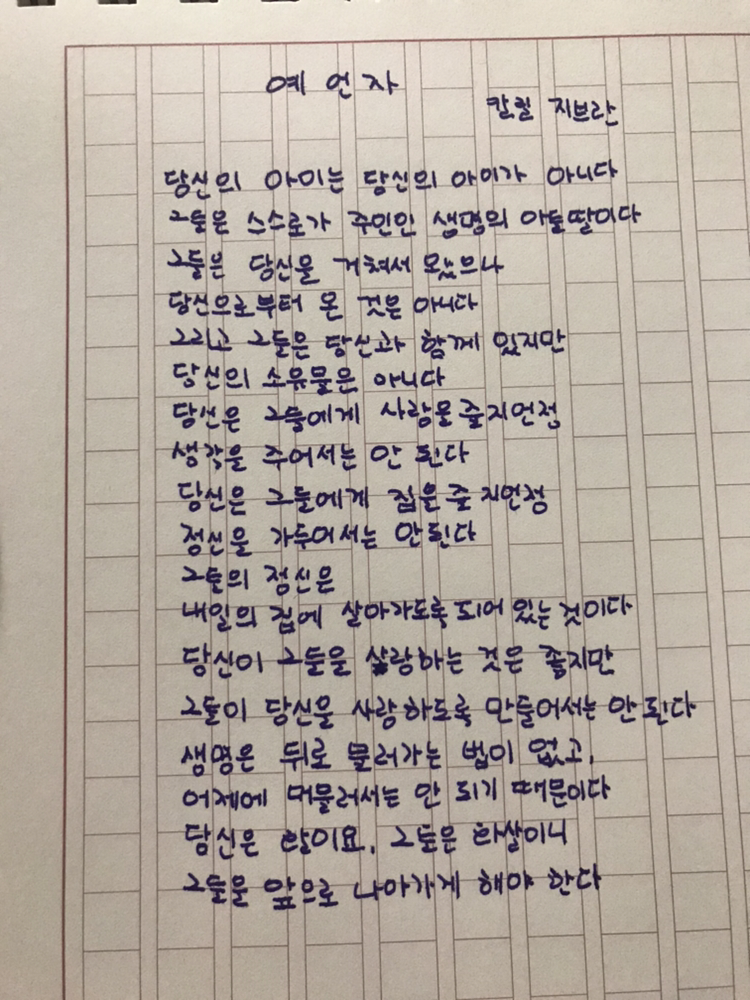 예언자
칼릴 지브란
당신의 아이는 당신의 아이가 아니다
그들은 스스로가 주인인 생명의 아들딸이다
그들은 당신을 거쳐서 왔으나
당신으로부터 온 것은 아니다
그리고 그들은 당신과 함께 있지만
당신의 소유물은 아니다
당신은 그들에게 사랑을 줄지언정
생각을 주어서는 안 된다
당신은 그들에게 집은 줄지언정
정신을 가두어서는 안된다
그들의 정신은
내일의 집에 살아가도록 되어 있는 것이다
당신이 그들을 사랑하는 것은 좋지만
그들이 당신을 사랑하도록 만들어서는 안 된다
생명은 뒤로 물러가는 법이 없고,
어제에 머물러서는 안 되기 때문이다
당신은 활이요, 그들은 화살이니
그들을 앞으로 나아가게 해야 한다